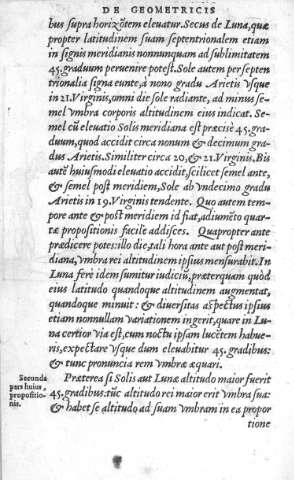 DE GEOMETRICIS
bus supra horizõtem eleuatur. Secus de Luna, quæ
propter latitudinem suam septentrionalem etiam
in signis meridianis nonnunquam ad sublimitatem
45. graduum peruenire potest. Sole autem per septen
trionalia signa eunte, à nono gradu Arietis vsque
in 21. Virginis, omni die sole radiante, ad minus se-
mel vmbra corporis altitudinem eius indicat. Se-
mel cũ eleuatio Solis meridiana est præcisè 45. gra-
duum, quod accidit circa nonum & decimum gra-
dus Arietis. Similiter circa 20, & 21. Virginis. Bis
autẽ huiusmodi eleuatio accidit, scilicet semel ante,
& semel post meridiem, Sole ab vndecimo gradu
Arietis in 19. Virginis tendente. Quo autem tem-
pore ante & post meridiem id fiat, adiumẽto quar-
tæ propositionis facile addisces. Quapropter ante
prædicere potes: illo die, tali hora ante aut post meri-
diana, vmbra rei altitudinem ipsius mensurabit. In
Luna ferè idem sumitur iudiciũ, præterquam quòd
eius latitudo quandoque altitudinem augmentat,
quandoque minuit: & diuersitas aspectus ipsius
etiam nonnullam variationem ingerit, quare in Lu-
na certior via est, cum noctu ipsam lucẽtem habue-
ris, expectare vsque dum eleuabitur 45. gradibus:
& tunc pronuncia rem vmbræ æquari.
Secunda
pars huius
propositio-
nis.
Præterea si Solis aut Lunæ altitudo maior fuerit
45. gradibus: tũc altitudo rei maior erit vmbra sua:
& habet se altitudo ad suam vmbram in ea propor
tione